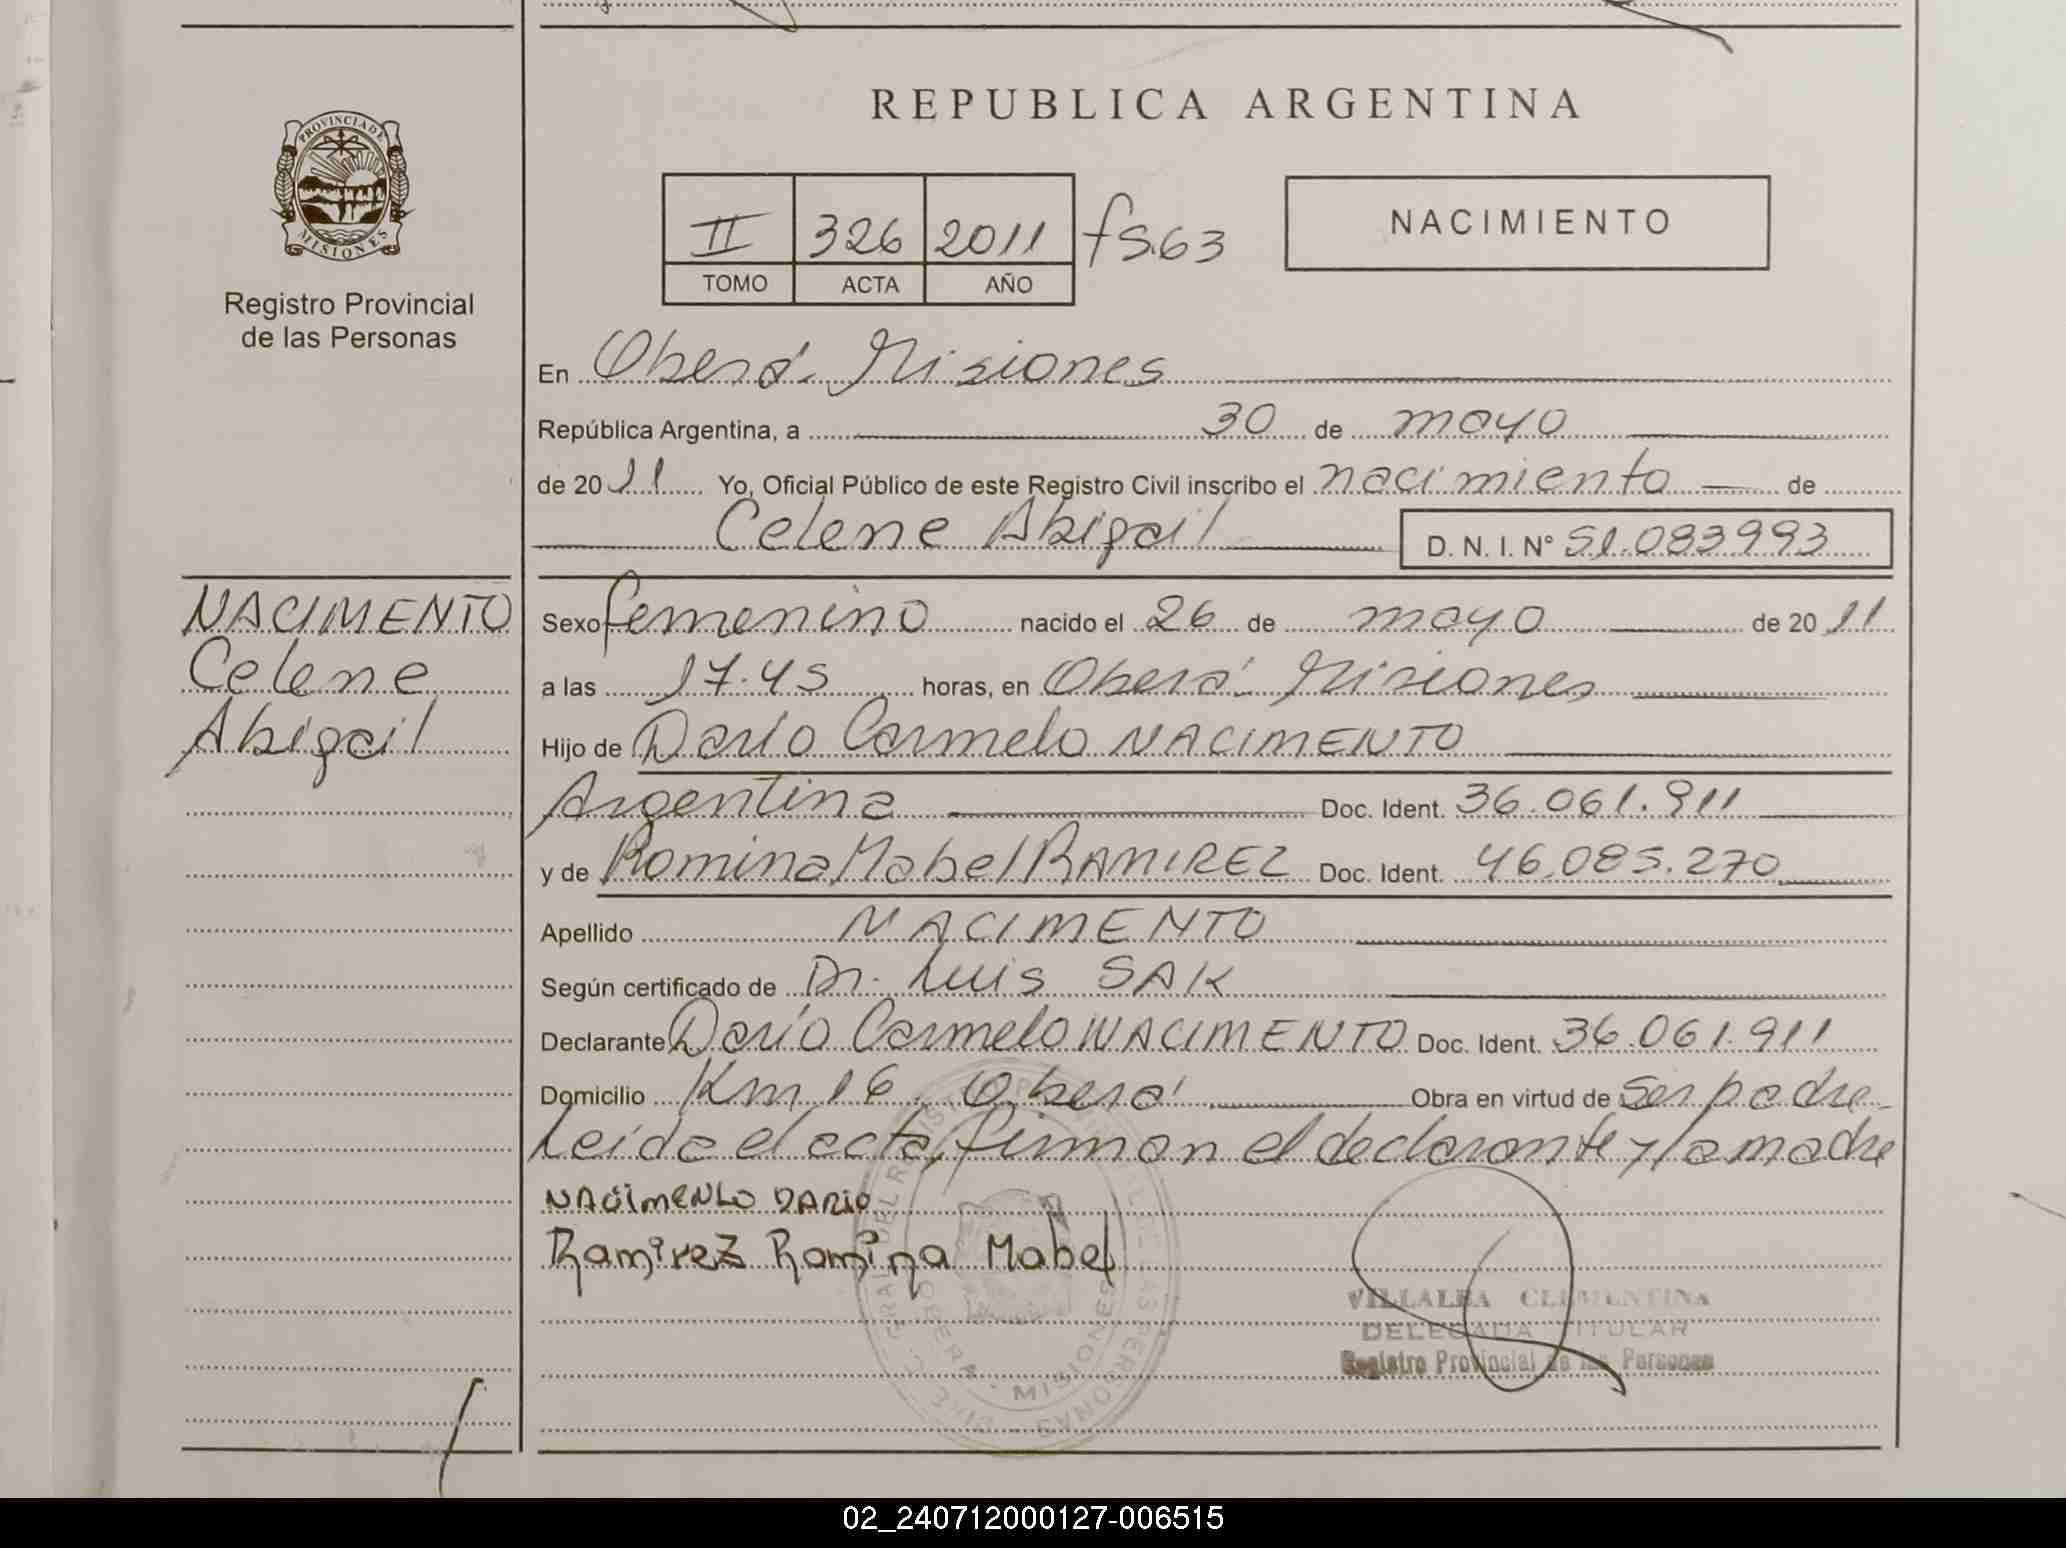 REPUBLICA ARGENTINA
PROVINCIA DE
MISIONES
Registro Provincial
de las Personas
II 326 2011 fs.63
TOMO ACTA AÑO
NACIMIENTO
En Oberá. Misiones
República Argentina, a 30 de mayo
de 2011 Yo, Oficial Público de este Registro Civil inscribo el nacimiento de
Celene Abigail D. N. I. Nº 51.083993
NACIMENTO
Celene
Abigail
Sexo femenino nacido el 26 de mayo de 2011
a las 17.45 horas, en Oberá. Misiones
Hijo de Darío Carmelo NACIMENTO
Argentina Doc. Ident. 36.061.911
y de Romina Mabel RAMIREZ Doc. Ident. 46.085.270
Apellido NACIMENTO
Según certificado de Dr. Luis SAK
Declarante Darío Carmelo NACIMENTO Doc. Ident. 36.061.911
Domicilio Km 16 Oberá Obra en virtud de ser padre
Leída el acta, firman el declarante y la madre
NACIMENTO DARIO
Ramirez Romina Mabel
VILLALBA CLEMENTINA
DELEGADA TITULAR
Registro Provincial de las Personas
OBERA - MISIONES
02_240712000127-006515